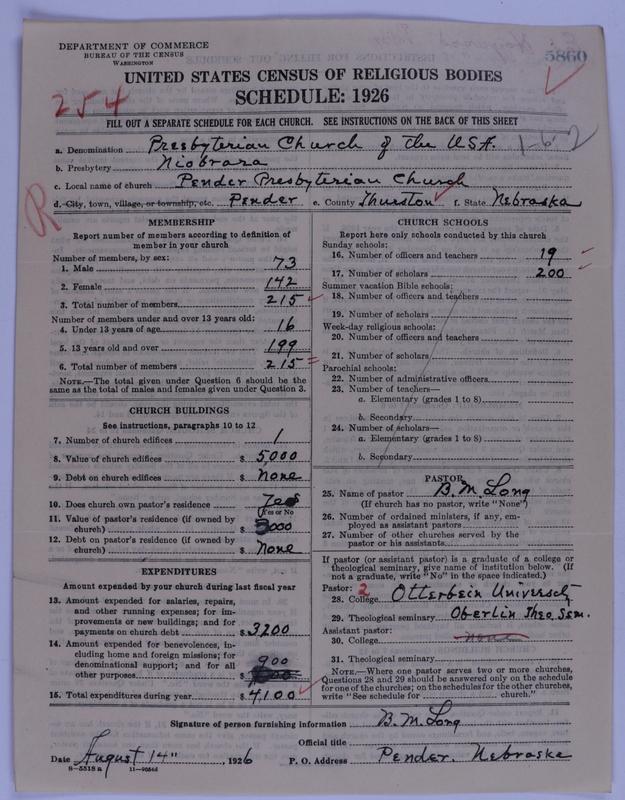 DEPARTMENT OF COMMERCE
BUREAU OF THE CENSUS
WASHINGTON
5860
UNITED STATES CENSUS OF RELIGIOUS BODIES
254
SCHEDULE: 1926
FILL OUT A SEPARATE SCHEDULE FOR EACH CHURCH. SEE INSTRUCTIONS ON THE BACK OF THIS SHEET
a. Denomination Presbyterian Church of the U.S.A. 1-6-2
b. Presbytery Niobrara
c. Local name of church Pender Presbyterian Church
R d. City, town, village, or township, etc. Pender e. County Thurston f. State Nebraska
MEMBERSHIP
Report number of members according to definition of member in your church
Number of members, by sex:
1. Male 73
2. Female 142
3. Total number of members 215
Number of members under and over 13 years old:
4. Under 13 years of age 16
5. 13 years old and over 199
6. Total number of members 215
NOTE.—The total given under Question 6 should be the same as the total of males and females given under Question 3.
CHURCH BUILDINGS
See instructions, paragraphs 10 to 12
7. Number of church edifices 1
8. Value of church edifices $ 5,000
9. Debt on church edifices $ none
10. Does church own pastor's residence Yes
(Yes or No)
11. Value of pastor's residence (if owned by
church) $ 3000
12. Debt on pastor's residence (if owned by
church) $ None
EXPENDITURES
Amount expended by your church during last fiscal year
13. Amount expended for salaries, repairs,
and other running expenses; for im-
provements or new buildings; and for
payments on church debt $ 3200
14. Amount expended for benevolences, in-
cluding home and foreign missions; for
denominational support; and for all 900
other purposes $
15. Total expenditures during year $ 4,100
CHURCH SCHOOLS
Report here only schools conducted by this church
Sunday schools:
16. Number of officers and teachers 19
17. Number of scholars 200
Summer vacation Bible schools:
18. Number of officers and teachers
19. Number of scholars
Week-day religious schools:
20. Number of officers and teachers
21. Number of scholars
Parochial schools:
22. Number of administrative officers
23. Number of teachers—
a. Elementary (grades 1 to 8)
b. Secondary
24. Number of scholars—
a. Elementary (grades 1 to 8)
b. Secondary
PASTOR
25. Name of pastor B. M. Long
(If church has no pastor, write "None")
26. Number of ordained ministers, if any, em-
ployed as assistant pastors
27. Number of other churches served by the
pastor or his assistants
If pastor (or assistant pastor) is a graduate of a college or
theological seminary, give name of institution below. (If
not a graduate, write "No" in the space indicated.)
Pastor: 2
28. College Otterbein University
29. Theological seminary Oberlin Theo. Sem.
Assistant pastor:
30. College none
31. Theological seminary
NOTE.—Where one pastor serves two or more churches,
Questions 28 and 29 should be answered only on the schedule
for one of the churches; on the schedules for the other churches,
write "See schedule for church."
Signature of person furnishing information B. M. Long
Official title
Date August 14", 1926 P. O. Address Pender, Nebraska
8-5518 a